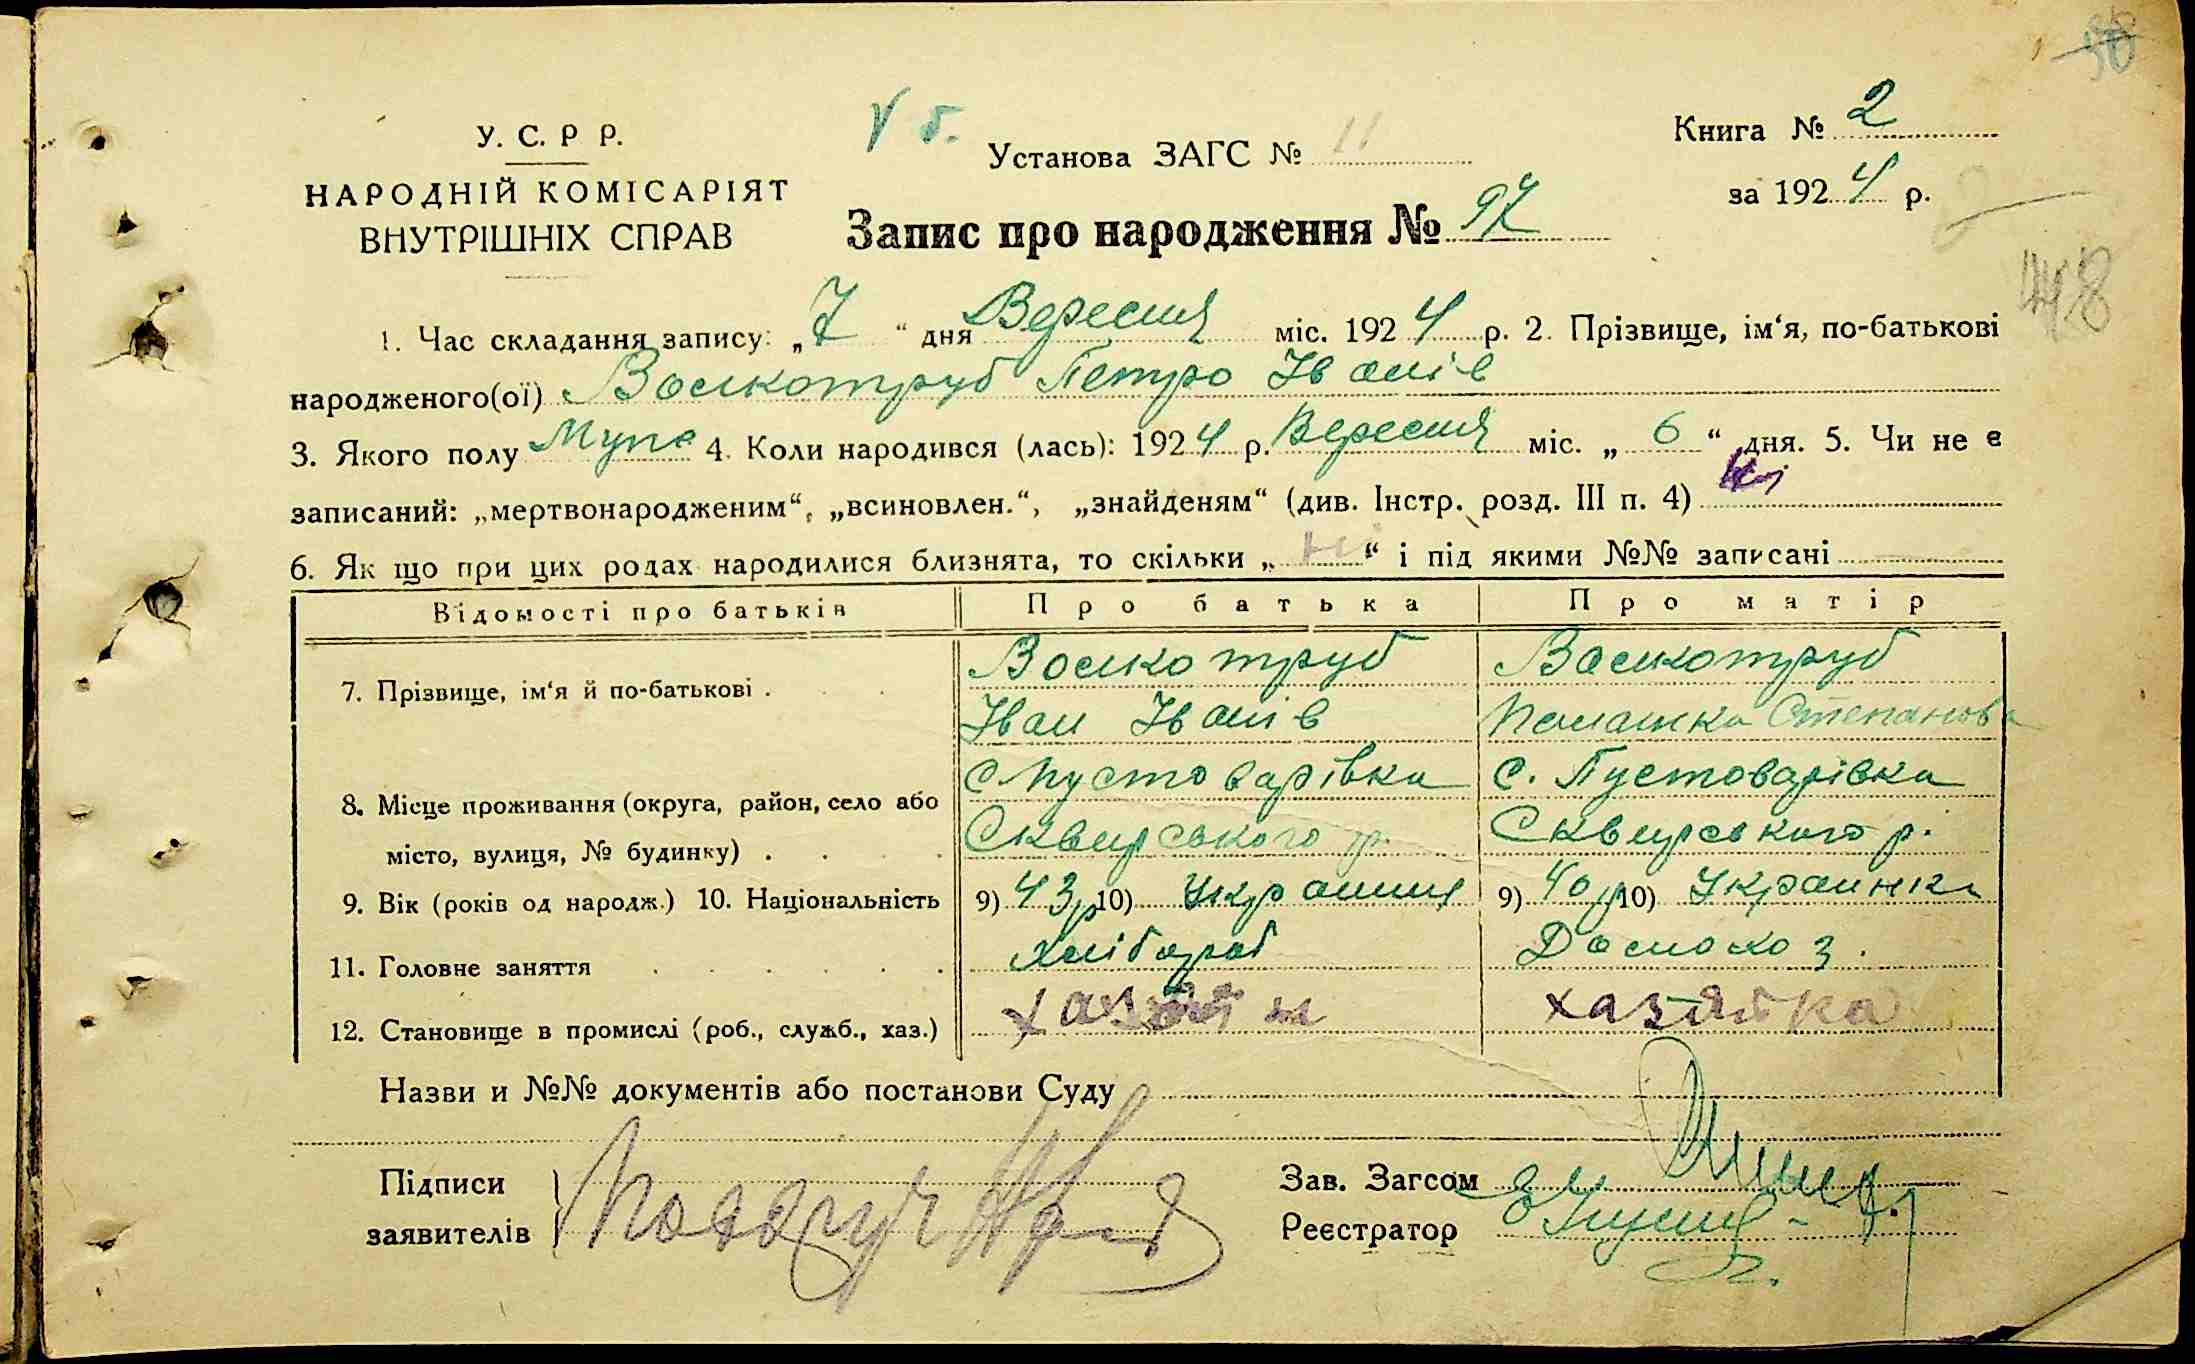 50
У. С. Р Р.
НАРОДНІЙ КОМІСАРІЯТ
ВНУТРІШНІХ СПРАВ
V б.
Установа ЗАГС № 11
Запис про народження № 97
Книга № 2
за 1924 р.
48
1. Час складання запису: „7“ дня Вересня міс. 1924 р. 2. Прізвище, ім‘я, по-батькові
народженого(ої) Волкотруб Петро Іванів
3. Якого полу Муж 4. Коли народився (лась): 1924 р. Вересня міс. „6“ дня. 5. Чи не є
записаний: „мертвонародженим“, „всиновлен.“, „знайденям“ (див. Інстр. розд. III п. 4) Ні
6. Як що при цих родах народилися близнята, то скільки „ні“ і під якими №№ записані
Відомості про батьків Про батька Про матір
7. Прізвище, ім‘я й по-батькові . Волкотруб Волкотруб
Іван Іванів Палашка Степанова
8. Місце проживання (округа, район, село або с Пустоварівка с. Пустоварівка
місто, вулиця, № будинку) . Сквирського р. Сквирського р.
9. Вік (років од народж.) 10. Національність 9) 43 р 10) Украинец 9) 40 р 10) Украинка
11. Головне заняття Хлібороб Домохоз.
12. Становище в промислі (роб., служб., хаз.) хазяїн хазяйка
Назви и №№ документів або постанови Суду
Підписи Зав. Загсом
заявителів Реєстратор